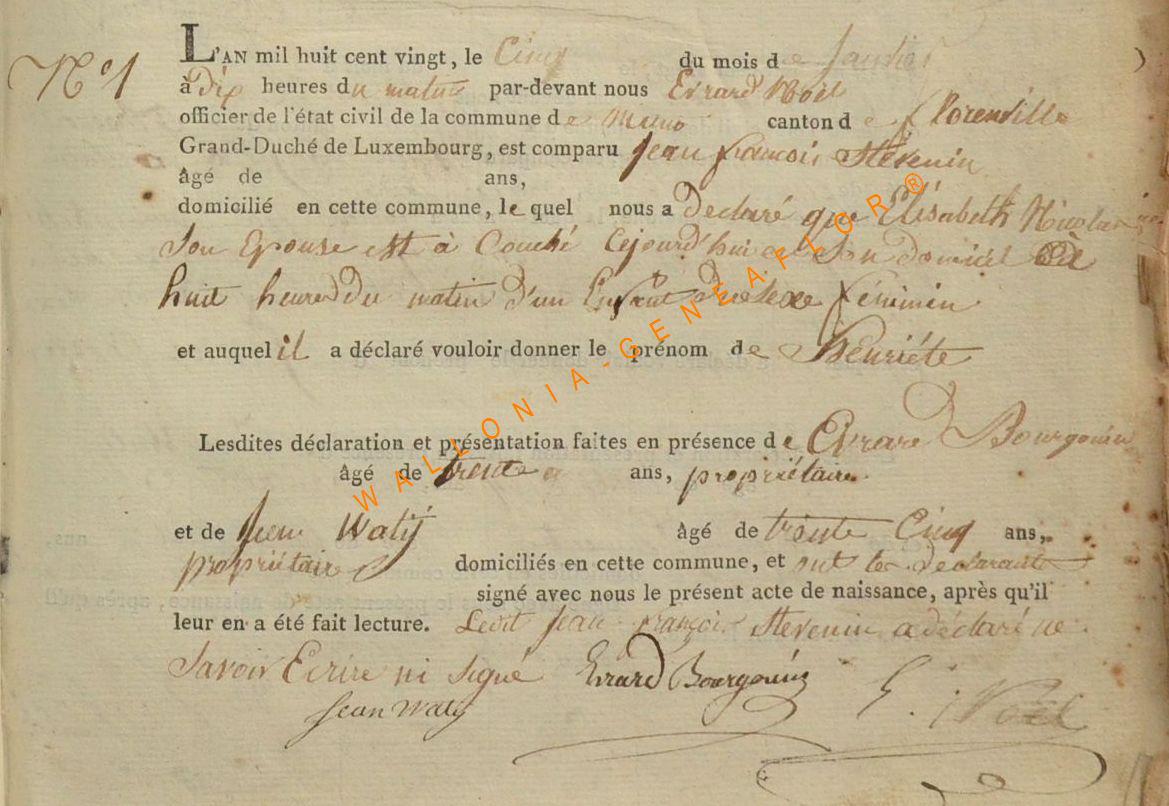 N° 1
L'AN mil huit cent vingt, le Cinq du mois de Janvier
à dix heures du matin par-devant nous Evrard Noël
officier de l'état civil de la commune de Muno canton de florenville
Grand-Duché de Luxembourg, est comparu Jean françois Stevenin
âgé de ans,
domicilié en cette commune, lequel nous a déclaré que Elisabeth Nicolas
Son Epouse est à Couché Cejourd'hui en Son domicil à
huit heures du matin d'un Enfant du sexe féminin
et auquel il a déclaré vouloir donner le prénom de Henriéte
Lesdites déclaration et présentation faites en présence de Evrard Bourgouin
âgé de trente ans, propriétaire
et de Jean Watÿ âgé de trente Cinq ans,
propriétaire domiciliés en cette commune, et ont les declarants
signé avec nous le présent acte de naissance, après qu'il
leur en a été fait lecture. Ledit Jean françois Stevenin a déclaré ne
Savoir Ecrire ni Signé Evrard Bourgouin
Jean Watÿ E. Noël
WALLONIA-GENEAFLOR®